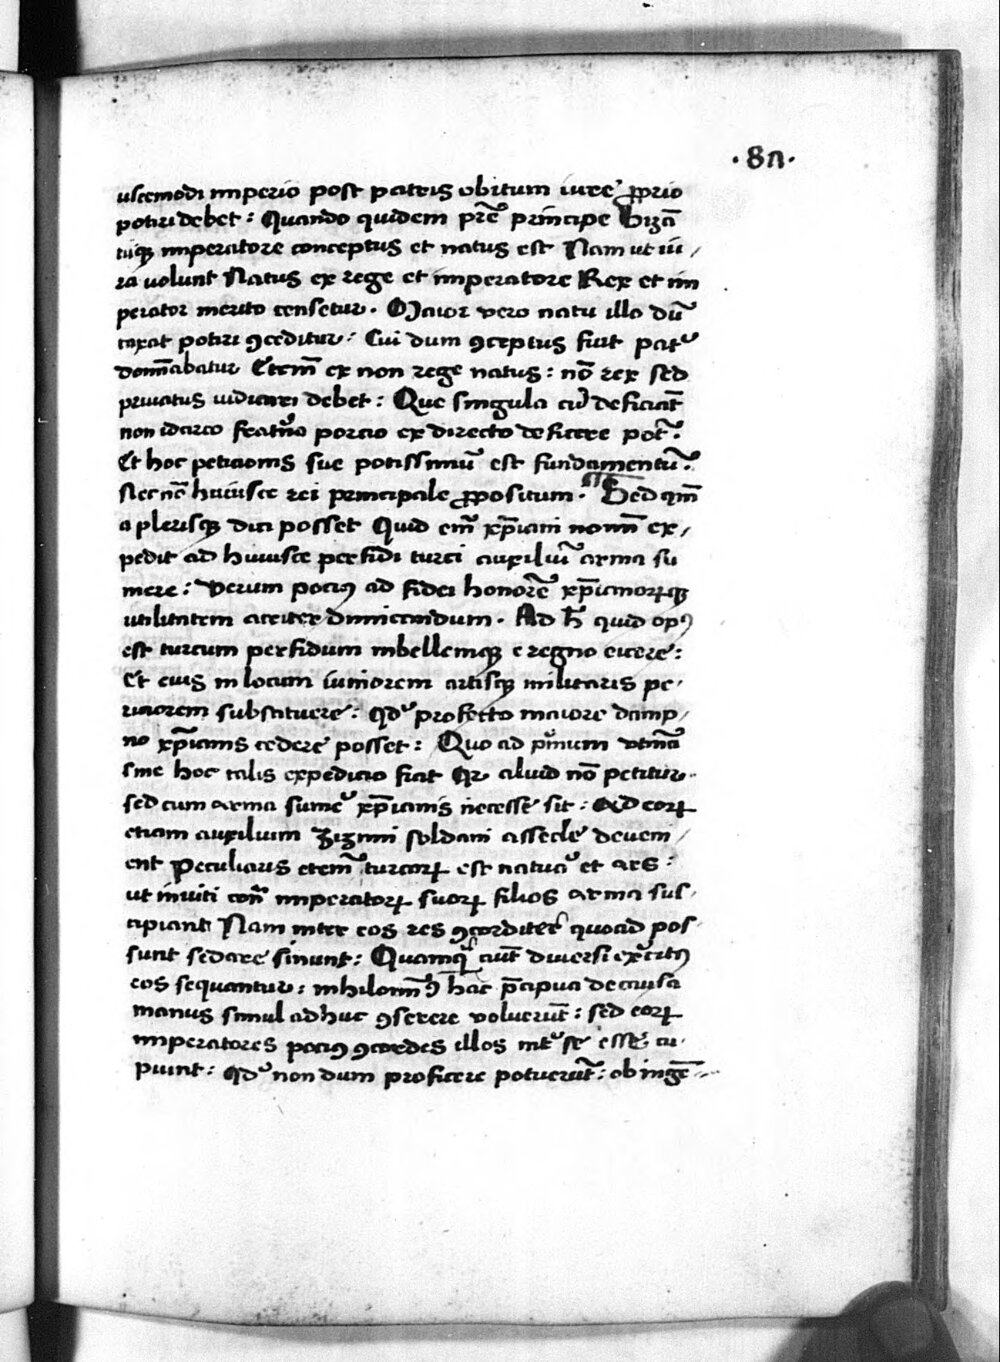 ·8n·
uscemodi imperio post patris obitum iure p̱prio
potiri debet: Quando quidem pr̄e principe Bizā
tiıqꝫ imperatore conceptus et natus est Nam ut iu/
ra uolunt Natus ex rege et imperatore Rex et im
perator merito censetur. Maior vero natu illo dū
taxat potiri ꝯceditur: Cui dum ꝯceptus fuit pat᷑
dominabatur Etem̄ ex non rege natus: nō rex sed
priuatus iudicari debet: Que singula cū deficiāt
non idcirco featina porcio ex directo deficere pot᷑:
Et hoc peticionis sue potissimū est fundamentū:
Nec nō huiusce rei principale p̱positum. Sed qm̄
a plerisqꝫ dici posset Quid em̄ xp̄iani nomīn ex/
pedit ad huiusce perfidi turci auxiliū arma su
mere: Verum pociꝰ ad fidei honorē xp̄ianorꝝqꝫ
utilitatem acriter dimicandum. Ad h̄ quid opꝰ
est turcum perfidum inbellemqꝫ e regno eicere:
Et eius in locum iuniorem artisqꝫ militaris pe/
riciorem substituere: qd᷑ profecto maiore damp/
no xp̄ianis cedere posset: Quo ad p̊mum utinā
sine hoc talis expedicio fiat Qꝛ aliud nō petitur.
sed cum arma sum᷑e xp̄ianis necesse sit: Ad eorꝝ
etiam auxilium Zizimi soldani assecle deueni/
ent Peculiaris etem̄ turcorꝝ est natur᷑a et ars:
ut inuiti cont᷑ imperatorꝝ suorꝝ filios arma sus/
cipiant Nam inter eos res ꝯcorditer quoad pos/
sunt sedare sinunt: Quamqꝫ aūt diuersi exercitꝰ
eos sequantur: nihilomīꝰ hac p̄cipua de causa
manus simul adhuc ꝯserere uoluerūt: sed eorꝝ
imperatores pociꝰ ꝯcordes illos int᷑ se esse cu/
piunt: qd᷑ non dum proficere potuerūt: ob ingē